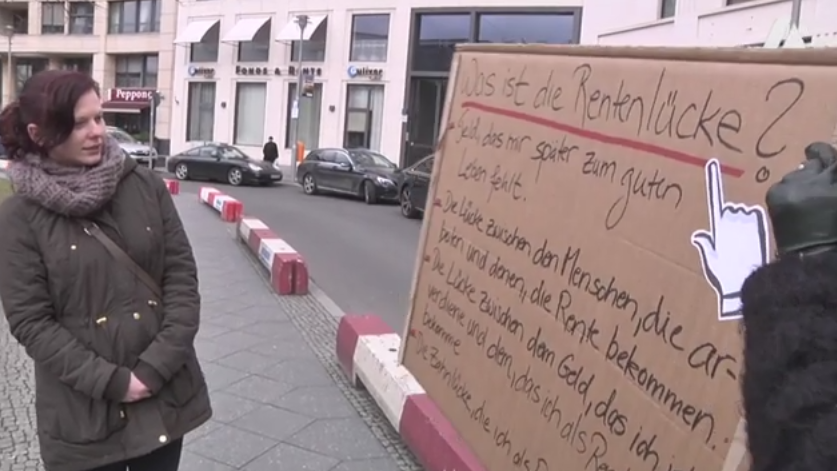 Peppone
Gulixer
FONDS & RENTE
Gulixer
Was ist die Rentenlücke?
- Geld, das mir später zum guten
Leben fehlt.
- Die Lücke zwischen den Menschen, die ar-
beiten und denen, die Rente bekommen.
- Die Lücke zwischen dem Geld, das ich
verdiene und dem, das ich als
bekomme
- Die Zahnlücke, die ich als